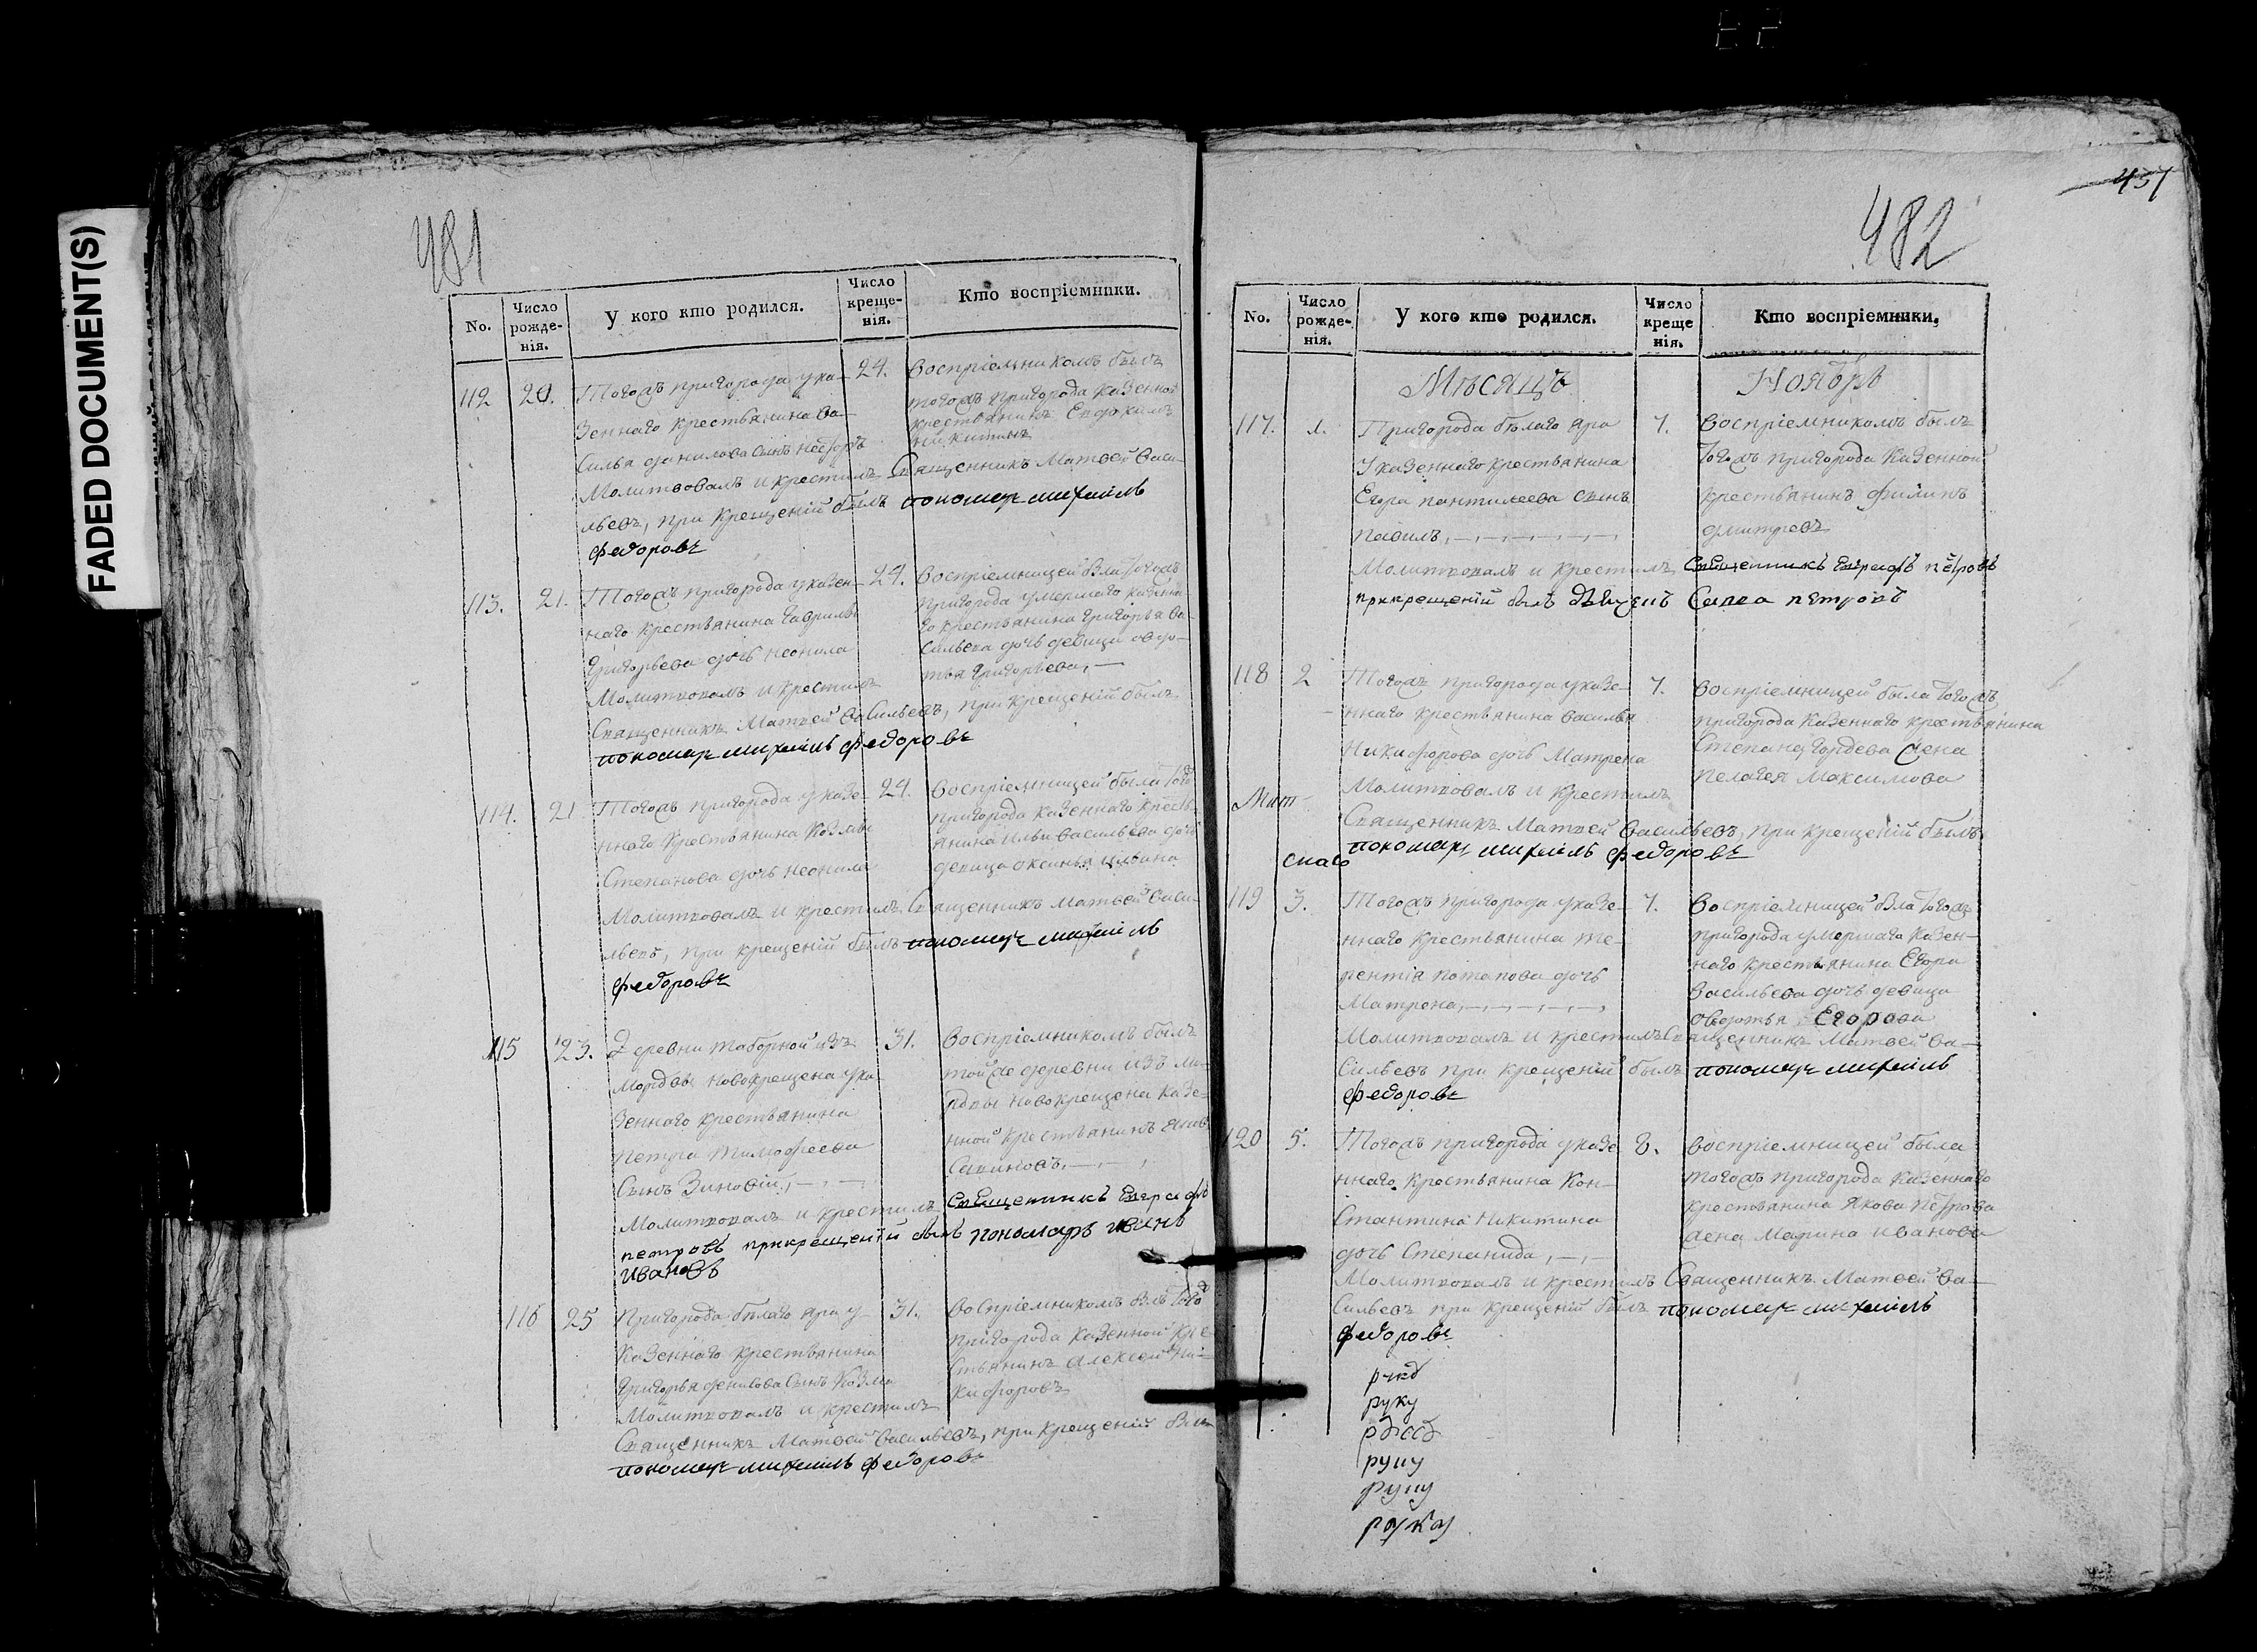 FADED DOCUMENT(S)
481
No.
Число рожде-нія.
У кого кто родился.
Число креще-нія.
Кто воспріемники.
112
20.
Тогожъ пригорода у ка-
зеннаго крестьянина Ва-
силья Данилова сынъ
Молитвовалъ и крестилъ Священникъ Матвей Васи-
льевъ, при крещеній былъ пономарь михаилъ
федоровъ
24.
воспріемникомъ былъ
тогожъ пригорода казенной
крестьянинъ Евдокимъ
Никитинъ
113.
21.
Тогожъ пригорода у казен-
наго крестьянина Гаврилы
Григорьева дочь неонила
Молитвовалъ и крестилъ
Священникъ Матвей Васильевъ, при крещеній былъ
пономарь михаилъ федоровъ
24.
воспріемницей была тогожъ
пригорода умершаго казенна
го крестьянина Григорья Ва-
сильева дочь девица овдо-
тья Григорьева,
114.
21
Тогожъ пригорода у казе-
ннаго крестьянина Козмы
Степанова дочь неонила
Молитвовалъ и крестилъ Священникъ Матвей Васи-
льевъ, при крещеній былъ пономарь михаилъ
федоровъ
24.
воспріемницей была того
пригорода казеннаго кресть-
янина Ильи Васильева дочь
девица оксинья ильина
115
23.
Деревни таборной изъ
мордвы новокрещена у ка-
зеннаго крестьянина
петра тимофеева
сынъ Зиновій,
Молитвовалъ и крестилъ Священникъ Евграфъ
петровъ прикрещеній былъ пономарь иванъ
ивановъ
31.
воспріемникомъ былъ
той же деревни изъ мо-
рдвы новокрещена казе-
нной крестьянинъ
116
25
Пригорода белаго яра у
казеннаго крестьянина
Григорья денисова сынъ Козма
Молитвовалъ и крестилъ
Священникъ Матвей Васильевъ, при крещеній былъ
пономарь михаилъ федоровъ
31.
воспріемникомъ былъ того
пригорода казенной кре-
стьянинъ алексей Ни-
кифоровъ
457
482
No.
Число рожде-нія.
У кого кто родился.
Число креще нія.
Кто воспріемники.
Мѣсяцъ Ноябрь
117.
1.
Пригорода белаго яра
у казеннаго крестьянина
Егора пантилеева сынъ
павилъ,
Молитвовалъ и крестилъ Священникъ Евграфъ петровъ
прикрещеній былъ дьячекъ Савва петровъ
7.
воспріемникомъ былъ
тогожъ пригорода казенной
крестьянинъ филипъ
дмитревъ
118
2
Тогожъ пригорода у казе-
ннаго крестьянина Василья
Никифорова дочь Матрена
Молитвовалъ и крестилъ
Священникъ Матвей Васильевъ, при крещеній былъ
пономарь михаилъ федоровъ
7.
воспріемницей была тогожъ
пригорода казеннаго крестьянина
Степана Гордева жена
пелагея Максимова
119
3.
Тогожъ пригорода у казе-
ннаго крестьянина те-
рентія потапова дочь
Матрена,
Молитвовалъ и крестилъ Священникъ Матвей Ва-
сильевъ при крещеній былъ пономарь михаилъ
федоровъ
7.
воспріемницей была тогожъ
пригорода умершаго казен-
наго крестьянина Егора
Васильева дочь девица
овдотья Егорова
120
5.
Тогожъ пригорода у казе
ннаго крестьянина Кон-
стантина Никитина
дочь Степанида,
Молитвовалъ и крестилъ Священникъ Матвей Ва-
сильевъ при крещеній былъ пономарь михаилъ
федоровъ
8.
воспріемницей была
тогожъ пригорода казеннаго
крестьянина Якова петрова
жена Марина иванова
руку